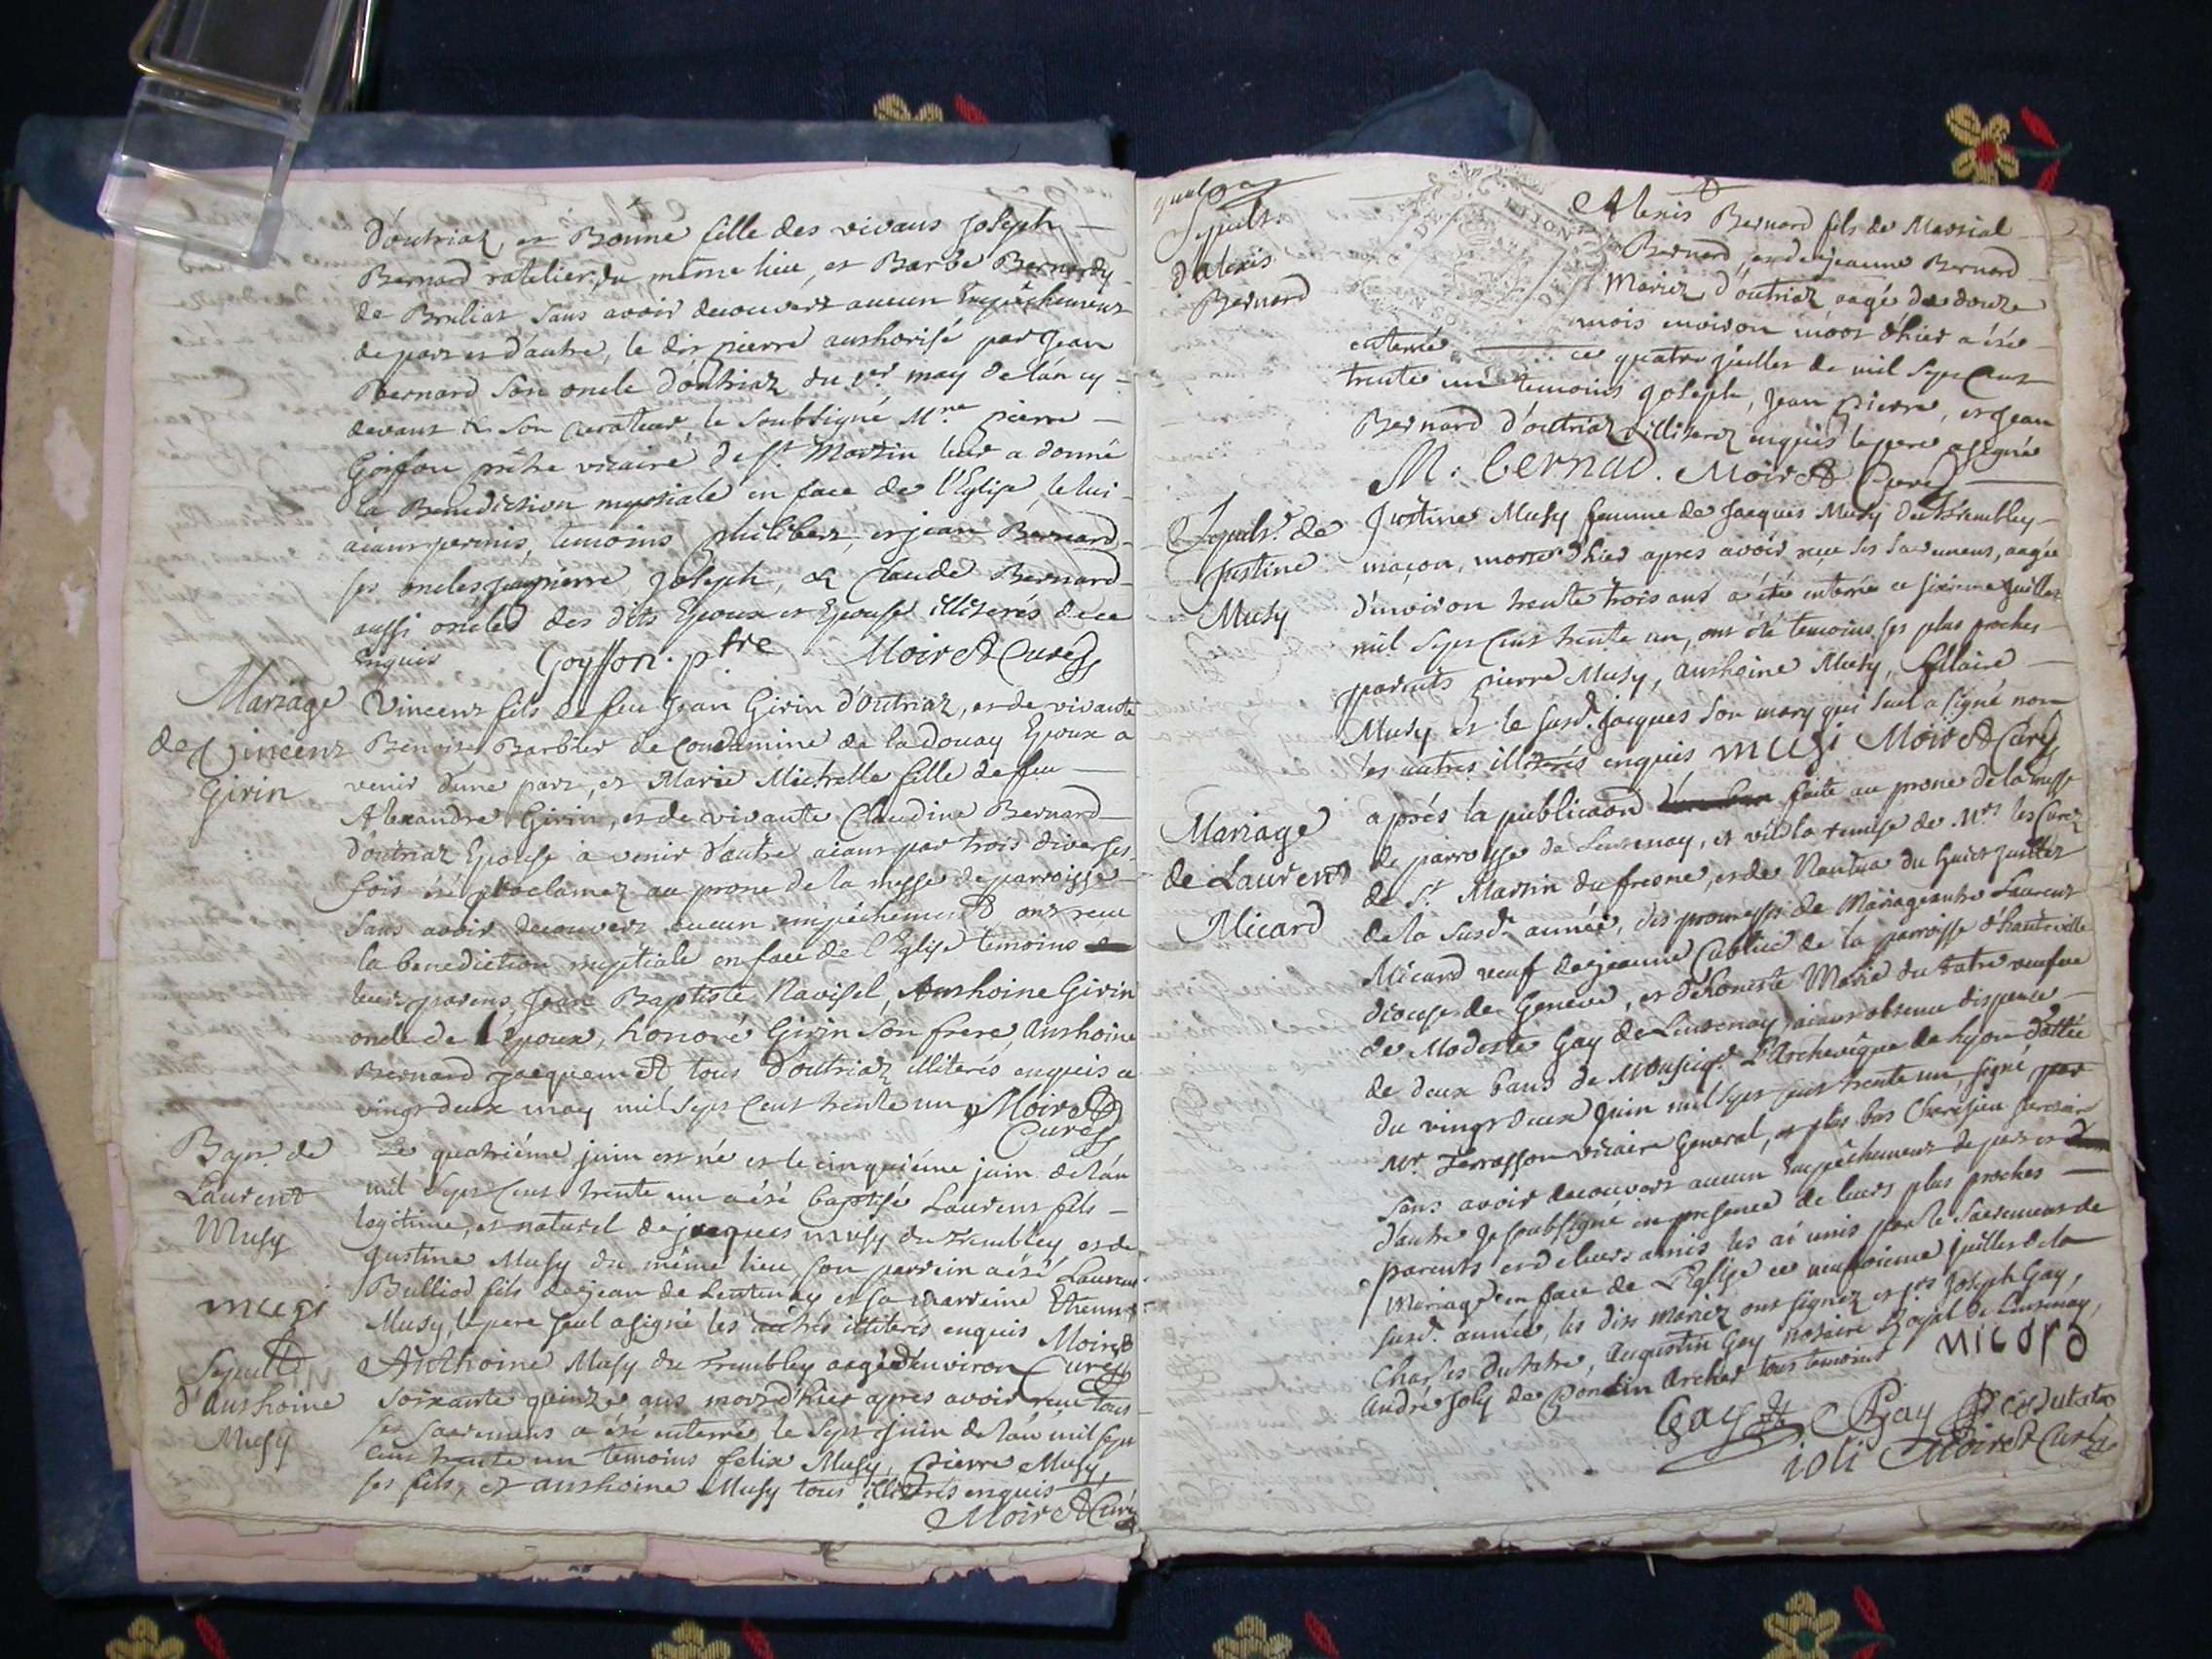 d'outriaz, et Bonne fille des vivans Joseph
Bernard ratelier du même lieu, et Barbe Bernardy
de Bruliat sans avoir decouvert aucun Empêchement
de part et d'autre, le dit pierre authorisé par Jean
Bernard son oncle d'outriaz du may de l'an cy
devant & son curateur, le soubsigné Mre pierre
Goiffon prêtre vicaire de St Martin leur a donné
la Benediction nuptiale en face de l'Eglise le lui
aiant permis, temoins philibert, et jean Bernard
ses oncles pierre Joseph, & Claude Bernard
aussi oncles des dits Epoux et Epouse illiterés de ce
Enquis Goyffon. ptre Moiret Curé
Mariage
de Vincent
Girin
Vincent fils de feu Jean Girin d'outriaz, et de vivante
Benoite Barbier de Condamine de la Douay Epoux a
venir d'une part, et Marie Michelle fille de feu
Alexandre Girin, et de vivante Claudine Bernard
d'outriaz Epouse a venir d'autre aiant par trois diverses
fois été proclamez au prone de la messe de parroisse
sans avoir decouvert aucun empêchement ont reçu
la benediction nuptiale en face de l'Eglise temoins
leurs parens, Jean Baptiste Ravisel, Anthoine Girin
oncle de l'epoux, honoré Girin son frere, Anthoine
Bernard Jacquemet tous d'outriaz illiterés enquis ce
vingt deux may mil sept cent trente un Moiret
Curé
Bapt. de
Laurent
Musy
Le quatriéme juin est né et le cinquiéme juin de l'an
mil sept cent trente un a été baptisé Laurent fils
legitime, et naturel de jacques musy du Trembley et de
Justine Musy du même lieu son parrein a été Laurent
Bulliod fils de jean de Lentenay et sa marreine Etiennette
Musy, le pere seul a signé les autres illiterés enquis Moiret
Curé
musi
Sepult.
d'Anthoine
Musy
Anthoine Musy du Trembley aagé d'environ
soixante quinze ans mort d'hier apres avoir reçu tous
ses sacremens a été enterré le sept Juin de l'an mil sept
cent trente un temoins felix Musy, pierre Musy,
ses fils, et anthoine Musy tous illiterés enquis
Moiret Curé
Sepult.
d'alexis
Bernard
Alexis Bernard fils de Martial
Bernard, et de jeanne Bernard
Mariez d'outriaz aagé de douze
mois environ mort d'hier a été
enterré ce quatre juillet de mil sept cent
trente un temoins Joseph, Jean pierre, et Jean
Bernard d'outriaz illiterez enquis le pere a signé
M. bernad. Moiret Curé
Sepult. de
Justine
Musy
Justine Musy femme de Jacques Musy du Trembley
maçon, morte d'hier apres avoir reçu ses sacremens, aagée
d'environ trente trois ans a été enterrée ce sixieme juillet
mil sept cent trente un, ont été temoins ses plus proches
parents pierre Musy, anthoine Musy, hillaire
Musy et le susd. Jacques son mary qui seul a signé non
les autres illiterés enquis musi Moiret Curé
Mariage
de Laurent
Micard
aprés la publicaon faite au prone de la messe
de parroisse de Lentenay, et vû la remise de Mrs les Curez
de St Martin du fresne, et de Nantua du huit juillet
de la susd. année, des promesses de Mariage entre Laurent
Micard veuf de jeanne de la parroisse d'hauteville
diocese de Geneve, et d'honeste Marie du tatre veufve
de Modeste Gay de Lentenay, aiant obtenu dispense
de deux bans de Monseigr L'Archevêque de Lyon dattée
du vingt deux Juin mil sept cent trente un, signé par
Mr Terrasson vicaire General, et plus bas
sans avoir decouvert aucun empêchement de part et
d'autre Je soubsigné en presence de leurs plus proches
parents et de leurs amis les ai unis par le Sacrement de
Mariage en face de L'Eglise ce neufvieme juillet de la
susd. année, les dits Mariez ont signez et Joseph Gay,
Charles Dutatre, Augustin Gay notaire Royal de Lentenay,
André Joly de Poncin Archer tous temoins micard
Gay Gay dutatre
ioli Moiret Curé